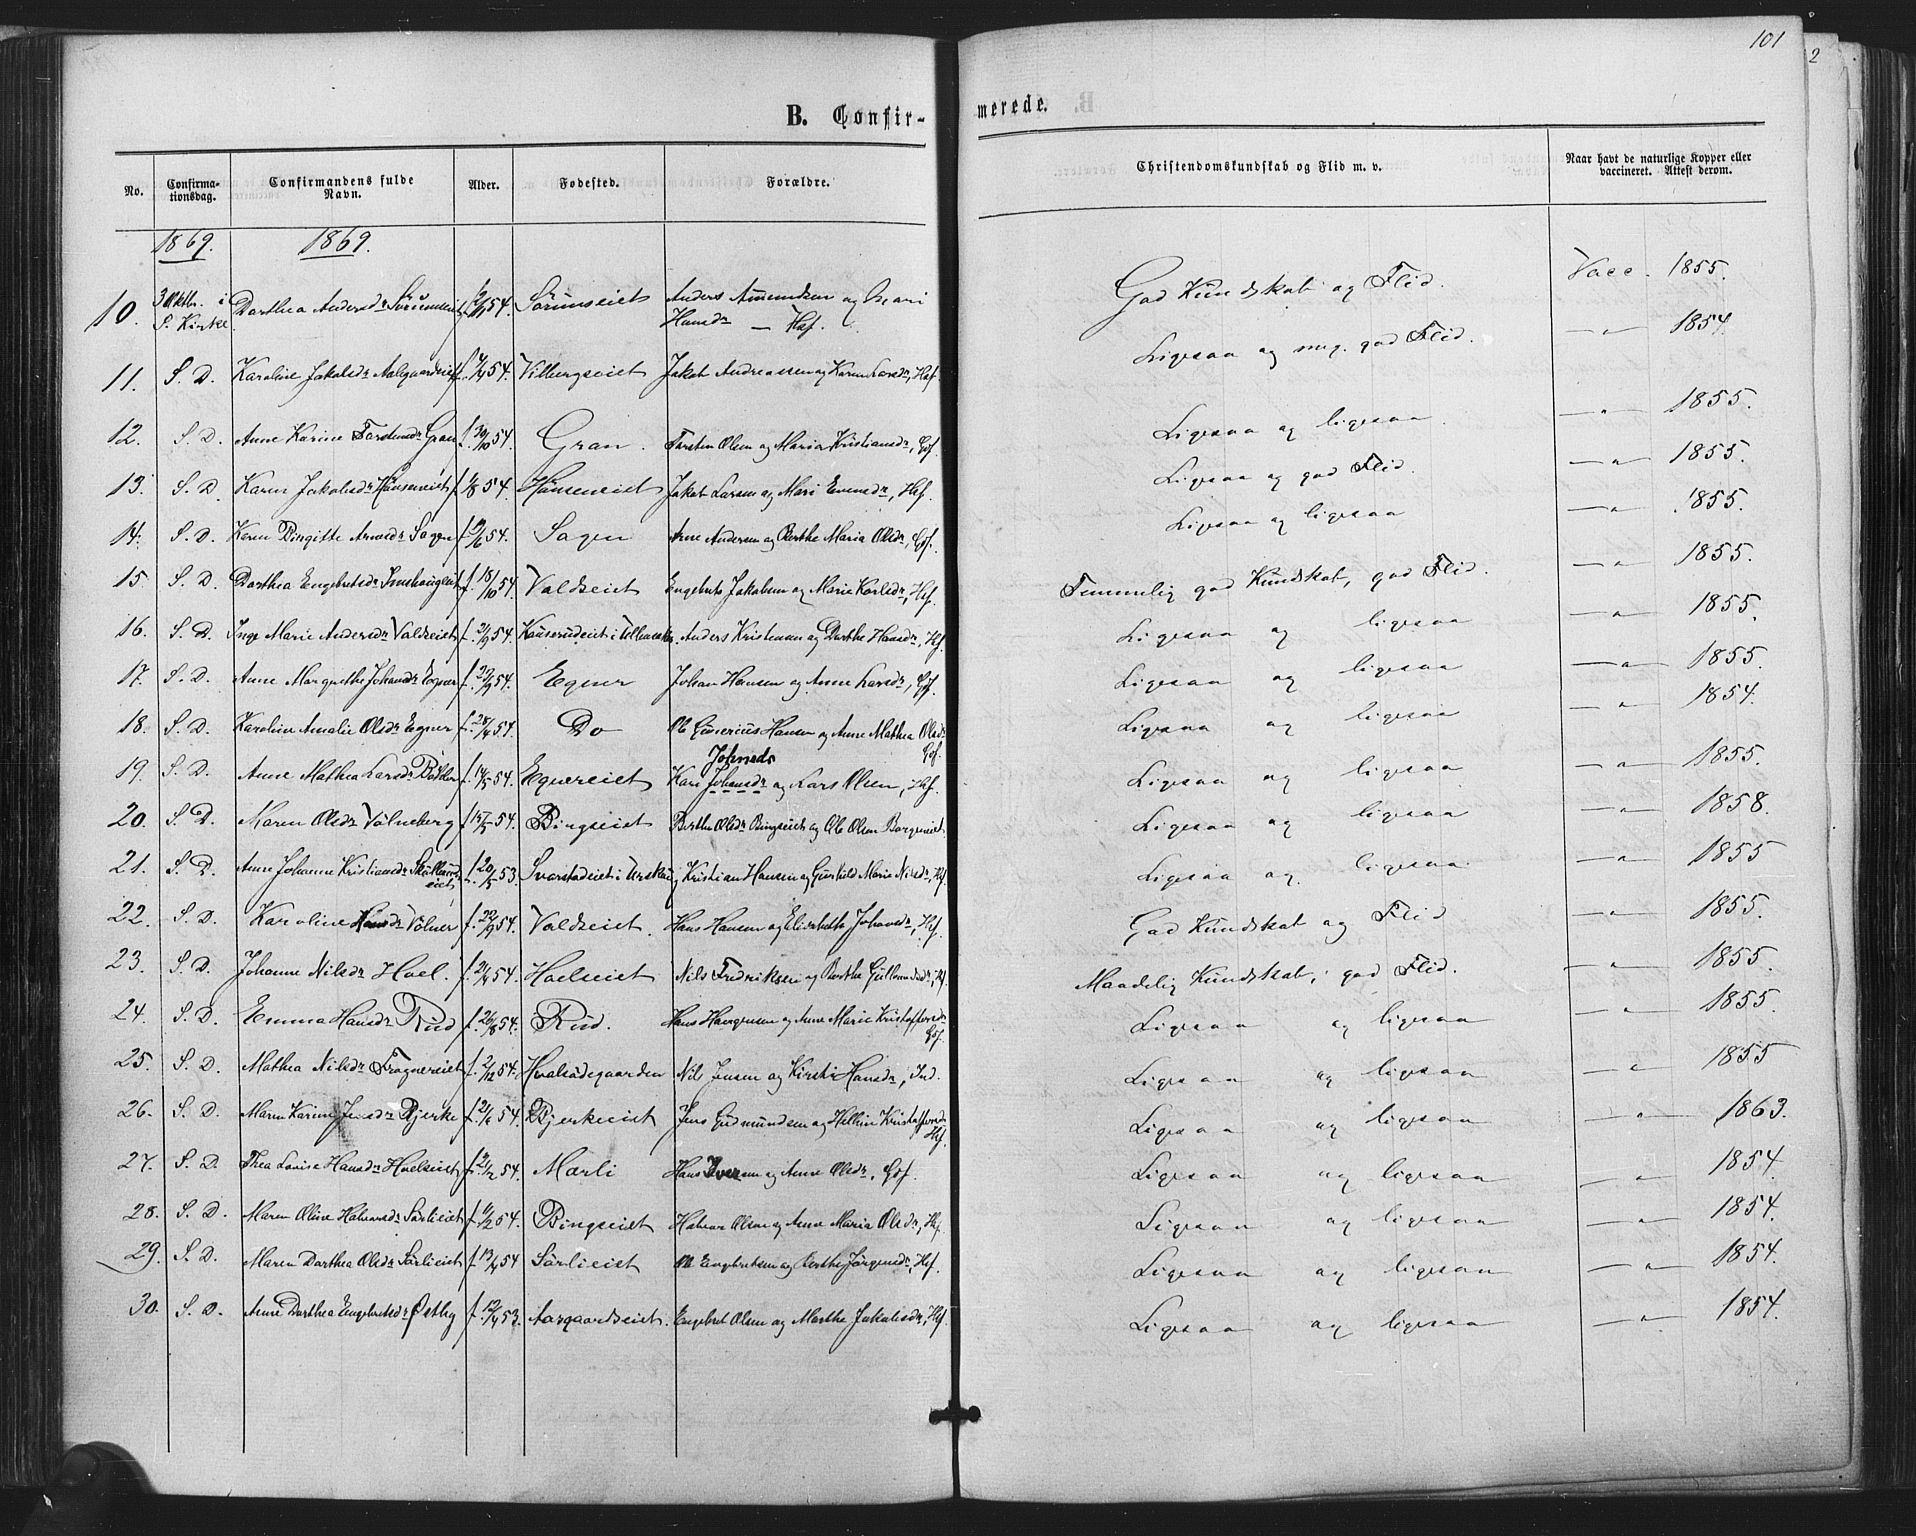 101
2
B. Confir-
merede.
No. Confirma-tionsdag. Confirmandens fulde Navn. Alder. Fødested. Forældre. Christendomskundskab og Flid m. v. Naar havt de naturlige Kopper eller vaccineret. Attest derom.
1869. 1869.
10. 3 Oktbr. i S. Kirke Dorthea Andersdr Sörumseiet f. 54. Sörumseiet Anders Amundsen og Mari Hansdr — Hsf. God Kundskab og Flid. Vacc. 1855.
11. S. D. Karoline Jakobsdr Aalgaardseiet f. 54. Vilbergseiet Jakob Andreassen og Karen Larsdr, Hsf. Ligesaa og meg. god Flid. —"— 1854
12. S. D. Anne Karine Torstensdr Gran f. 30/10 54. Gran. Torsten Olsen og Maria Kristiansdr, Gbf. Ligesaa og ligesaa. —"— 1855.
13. S. D. Karen Jakobsdr Hönseneiet f. 1/8 54. Hönseneiet Jakob Larsen og Mari Evensdr, Hsf. Ligesaa og god Flid. —"— 1855.
14. S. D. Karen Birgitte Arnesdr Sagen f. 54. Sagen Arne Andersen og Berthe Maria Olsdr, Gbf. Ligesaa og ligesaa —"— 1855.
15 S. D. Dorthea Engebretsdr f. 18/10 54. Valdseiet Engebret Jakobsen og Marie Karlsdr, Hsf. Temmelig god Kundskab, god Flid. —"— 1855.
16. S. D. Inge Marie Andersdr Valdseiet f. 54. i Ullensaker. Anders Kristensen og Dorthe Hansdr, Hsf. Ligesaa og ligesaa —"— 1855.
17. S. D. Anne Margrethe Johansdr Egner f. 23/9 54. Egner Johan Hansen og Anne Larsdr, Gbf. Ligesaa og ligesaa —"— 1855.
18. S. D. Karoline Amalie Olsdr Egner f. 28/4 54. Do Ole Gunerius Hansen og Anne Mathea Olsdr Gbf. Ligesaa og ligesaa —"— 1854.
19. S. D. Anne Mathea Larsdr f. 14/5 54. Egnereiet Kari Johansdr Johnsdr og Lars Olsen, Hsf. Ligesaa og ligesaa —"— 1855.
20. S. D. Maren Olsdr Völneberg f. 54. Bingseiet Berthe Olsdr Bingseiet og Ole Olsen Borgeneiet. Ligesaa og ligesaa —"— 1858.
21. S. D. Anne Johanne Kristiansdr f. 20/5 53. Svarstadeiet i Urskoug Kristian Hansen og Gunhild Marie Nilsdr, Hsf. Ligesaa og ligesaa —"— 1855
22. S. D. Karoline Hansdr Völner f. 22/9 54. Valdseiet. Hans Hansen og Elisabeth Johansdr, Hsf. God Kundskab og Flid —"— 1855.
23. S. D. Johanne Nilsdr Hoel. f. 54. Hoelseiet Nils Fredriksen og Berthe Gulbrandsdr, Hsf. Maadelig Kundskab, god Flid. —"— 1855.
24. S. D. Emma Hansdr Rud f. 26/8 54. Rud. Hans Haagensen og Anne Marie Kristoffersdr Gbf. Ligesaa og ligesaa —"— 1855.
25. S. D. Mathea Nilsdr Fragnereiet f. 2/12 54. Hvalsödegaarden Nils Jensen og Kirsti Hansdr, Ind. Ligesaa og ligesaa —"— 1855
26. S. D. Maren Karine Jensdr Bjerke f. 54. Bjerkeeiet Jens Gudmundsen og Helline Kristoffersdr Hsf. Ligesaa og ligesaa —"— 1863.
27. S. D. Thea Lovise Hansdr Hoelseiet f. 54. Mærli Hans Iversen og Anne Olsdr, Gbf. Ligesaa og ligesaa —"— 1854.
28. S. D. Maren Oline Halvorsdr Sörlieiet f. 54. Bingseiet Halvor Olsen og Anne Maria Olsdr, Hsf. Ligesaa og ligesaa —"— 1854.
29. S. D. Maren Dorthea Olsdr Sörlieiet f. 54 Sörlieiet Ole Engebretsen og Berthe Jörgensdr, Hsf. Ligesaa og ligesaa —"— 1854.
30. S. D. Anne Dorthea Engebretsdr Østby f. 53. Aargaardseiet. Engebret Olsen og Marthe Jakobsdr, Hsf. Ligesaa og ligesaa —"— 1854.